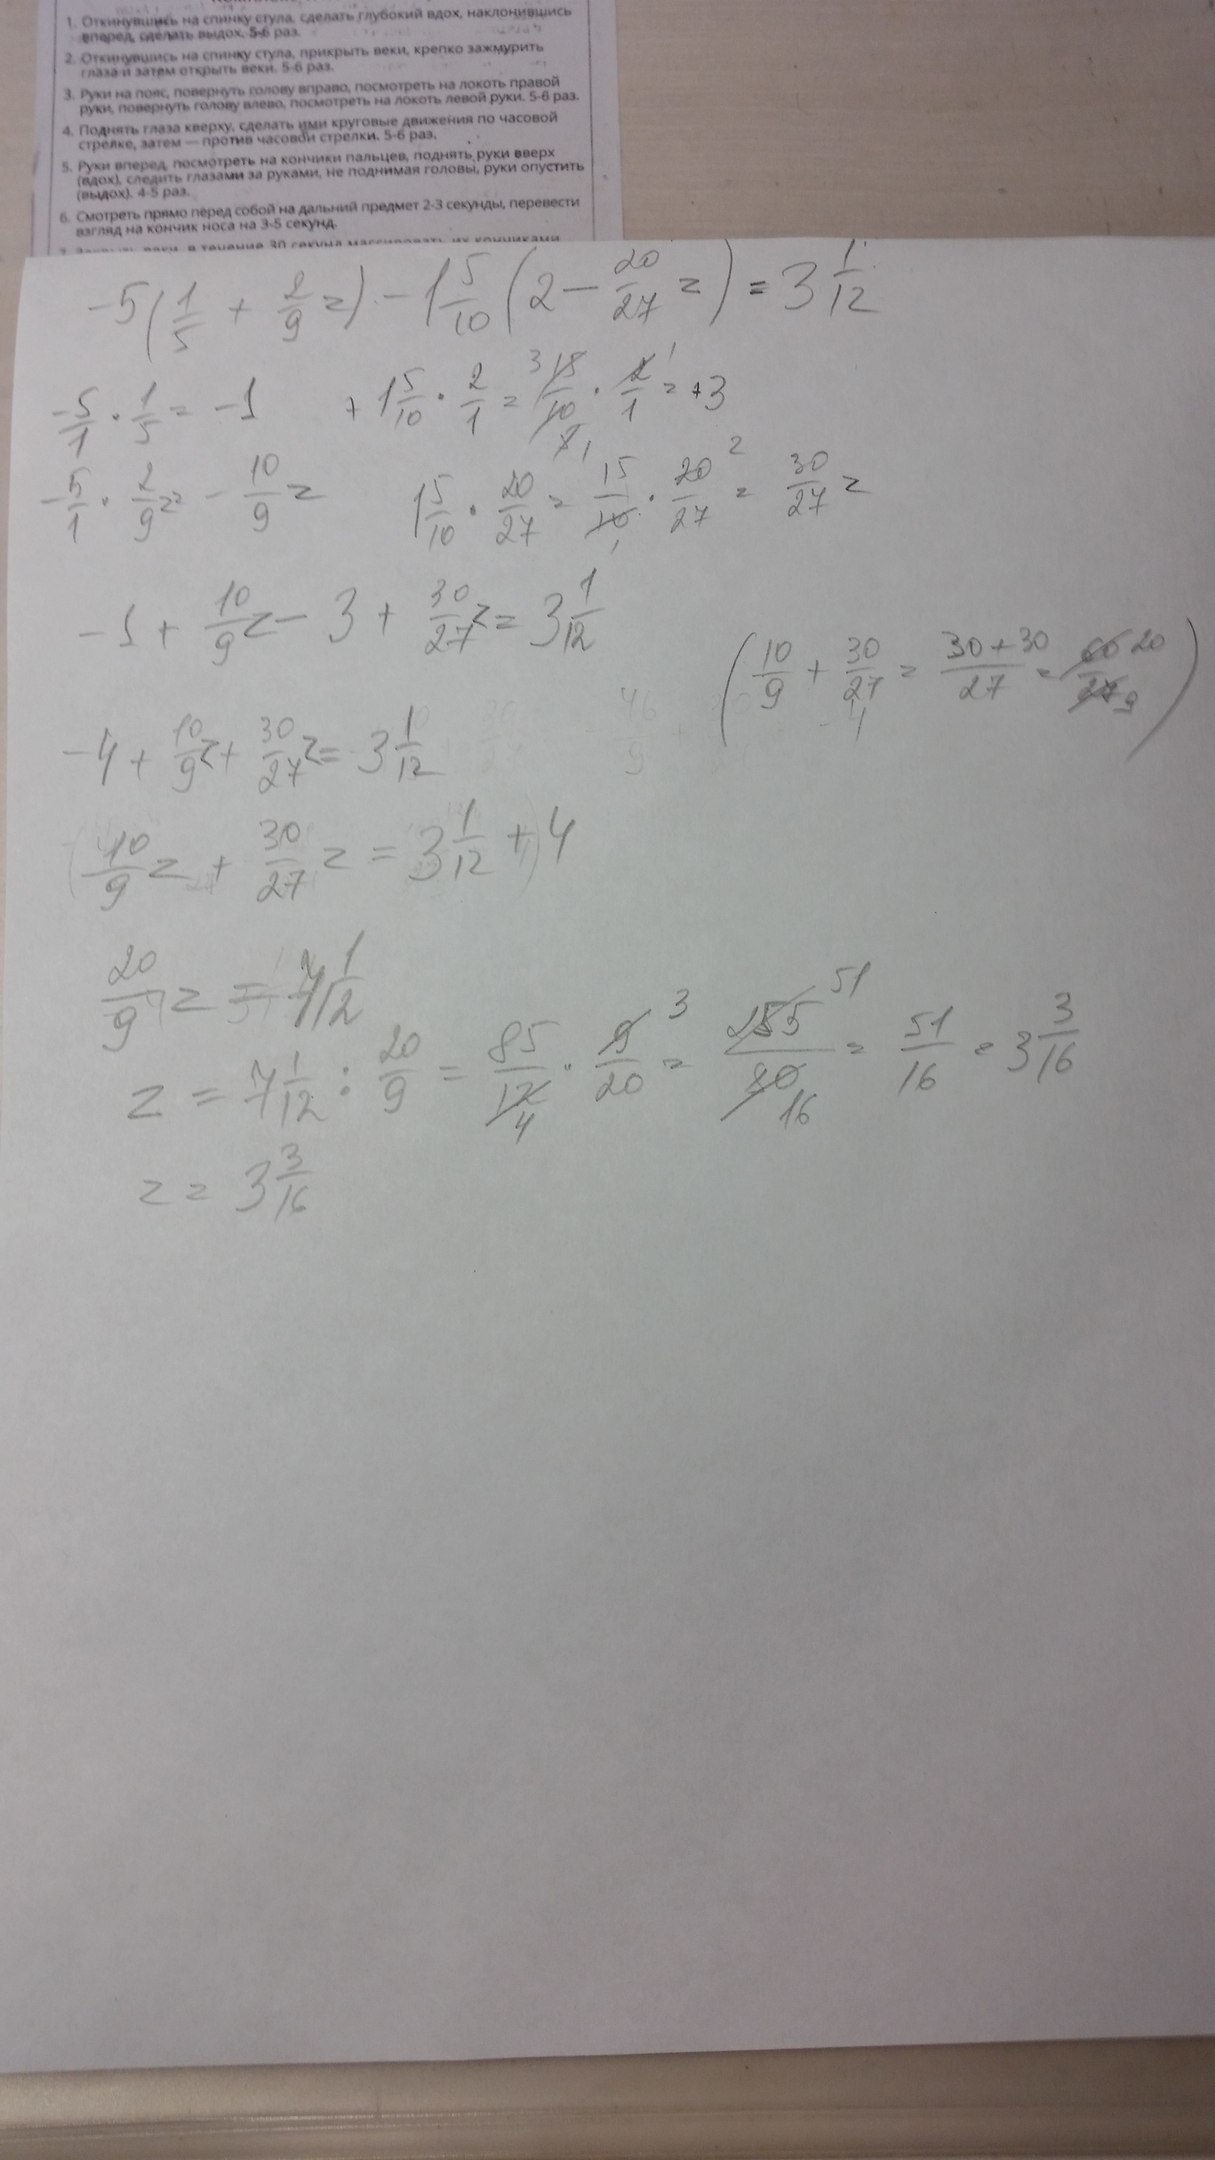 1. Откинувшись на спинку стула, сделать глубокий вдох, наклонившись
вперед, сделать выдох. 5-6 раз.
2. Откинувшись на спинку стула, прикрыть веки, крепко зажмурить
глаза и затем открыть веки. 5-6 раз.
3. Руки на пояс, повернуть голову вправо, посмотреть на локоть правой
руки, повернуть голову влево, посмотреть на локоть левой руки. 5-6 раз.
4. Поднять глаза кверху, сделать ими круговые движения по часовой
стрелке, затем — против часовой стрелки. 5-6 раз.
5. Руки вперед, посмотреть на кончики пальцев, поднять руки вверх
(вдох), следить глазами за руками, не поднимая головы, руки опустить
(выдох). 4-5 раз.
6. Смотреть прямо перед собой на дальний предмет 2-3 секунды, перевести
взгляд на кончик носа на 3-5 секунд.
-5(1/5 + 2/9 z) - 1 5/10 (2 - 20/27 z) = 3 1/12
-5/1 · 1/5 = -1 + 1 5/10 · 2/1 = 15/10 · 2/1 = +3
-5/1 · 2/9 z = -10/9 z 1 5/10 · 20/27 = 15/10 · 20/27 = 30/27 z
-1 + 10/9 z - 3 + 30/27 z = 3 1/12
(10/9 + 30/27 = 30+30/27 = 60/27 20/9)
-4 + 10/9 z + 30/27 z = 3 1/12
10/9 z + 30/27 z = 3 1/12 + 4
20/9 z = 7 1/2
z = 7 1/12 : 20/9 = 85/12 · 9/20 = 255/80 = 51/16 = 3 3/16
z = 3 3/16